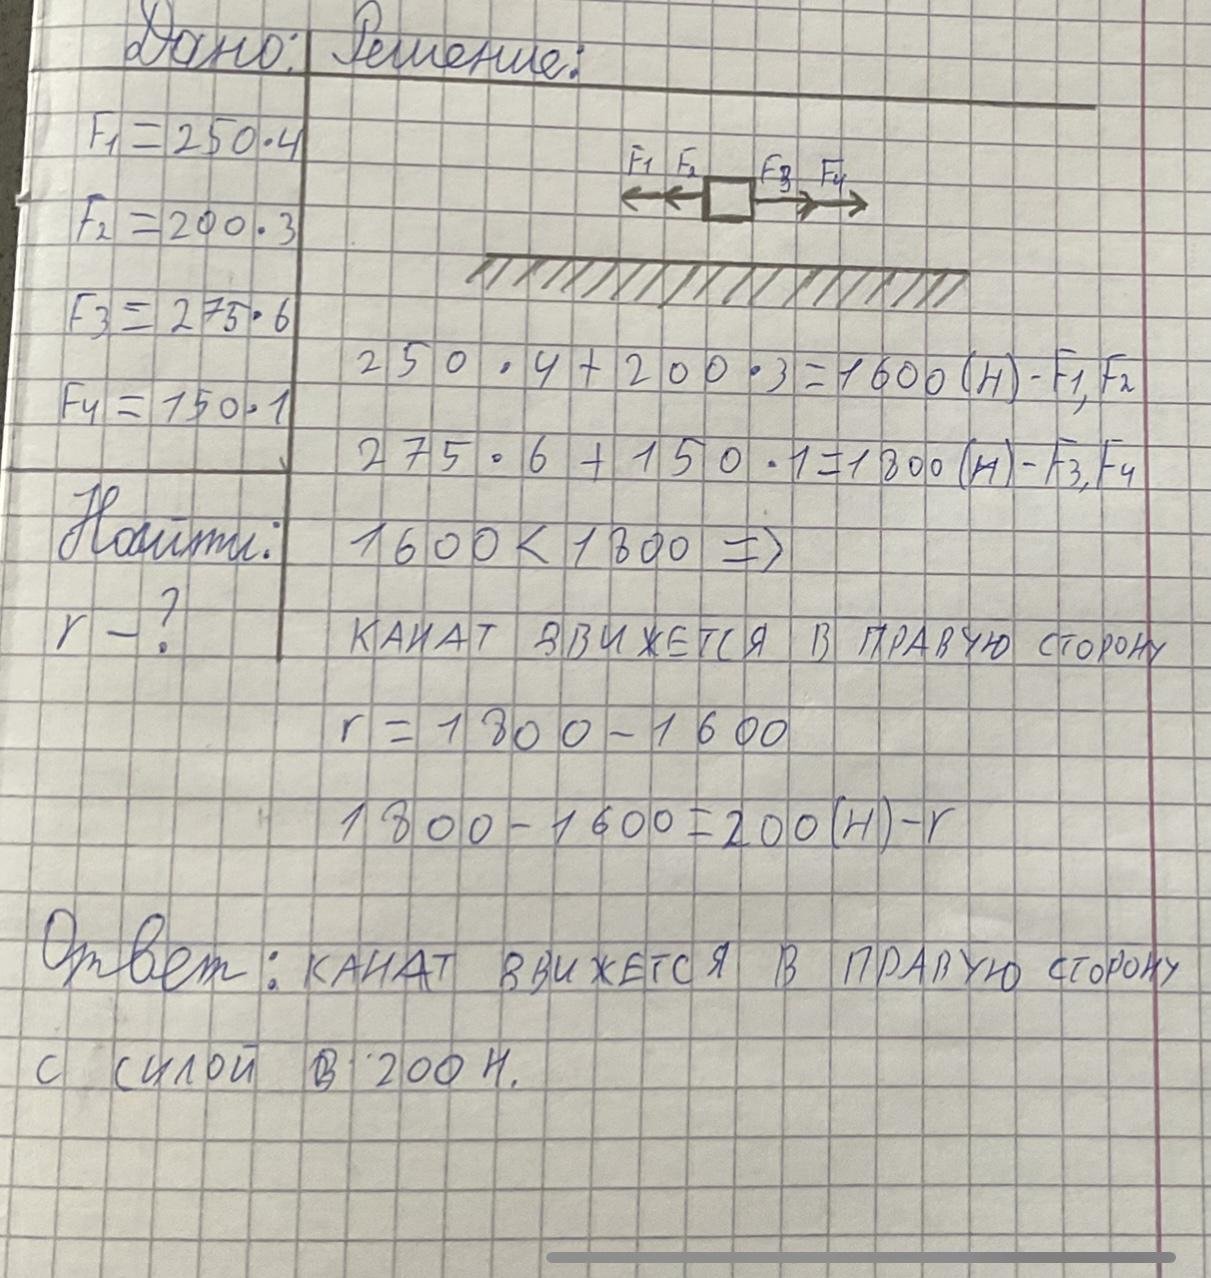 Дано: Решение:
F1 = 250·4
F2 = 200·3
F3 = 275·6
F4 = 150·1
Найти:
r - ?
F1 F2 F3 F4
250·4+200·3=1600(Н)-F1,F2
275·6+150·1=1800(Н)-F3,F4
1600<1800 =>
КАНАТ ДВИЖЕТСЯ В ПРАВУЮ СТОРОНУ
r=1800-1600
1800-1600=200(Н)-r
Ответ: КАНАТ ДВИЖЕТСЯ В ПРАВУЮ СТОРОНУ
С СИЛОЙ В 200 Н.